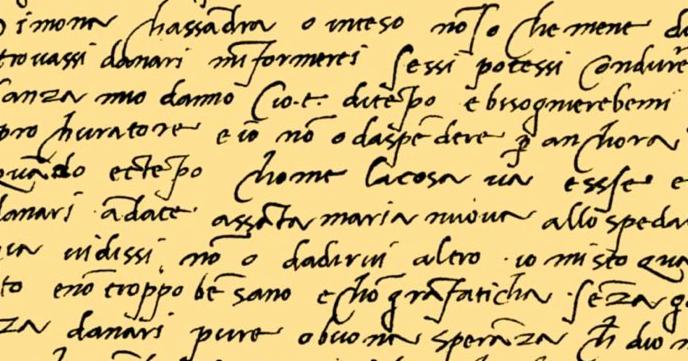 simona chassādra o inteso nō so che mene du
trovassi danari mi formerei sessi potessi condure
sanza mio danno cioe ditēpo e bisognierebemi
prochuratore e io nō o daspēdere p anchora
quādo ectēpo chome lacosa va essere e
danari ādate assāta maria nuova allo speda
vidissi nō o dadirvi altro io mi sto qua
to e nō troppo bē sano e chō grā faticha sēza
za danari pure o buona sperāza ch dio